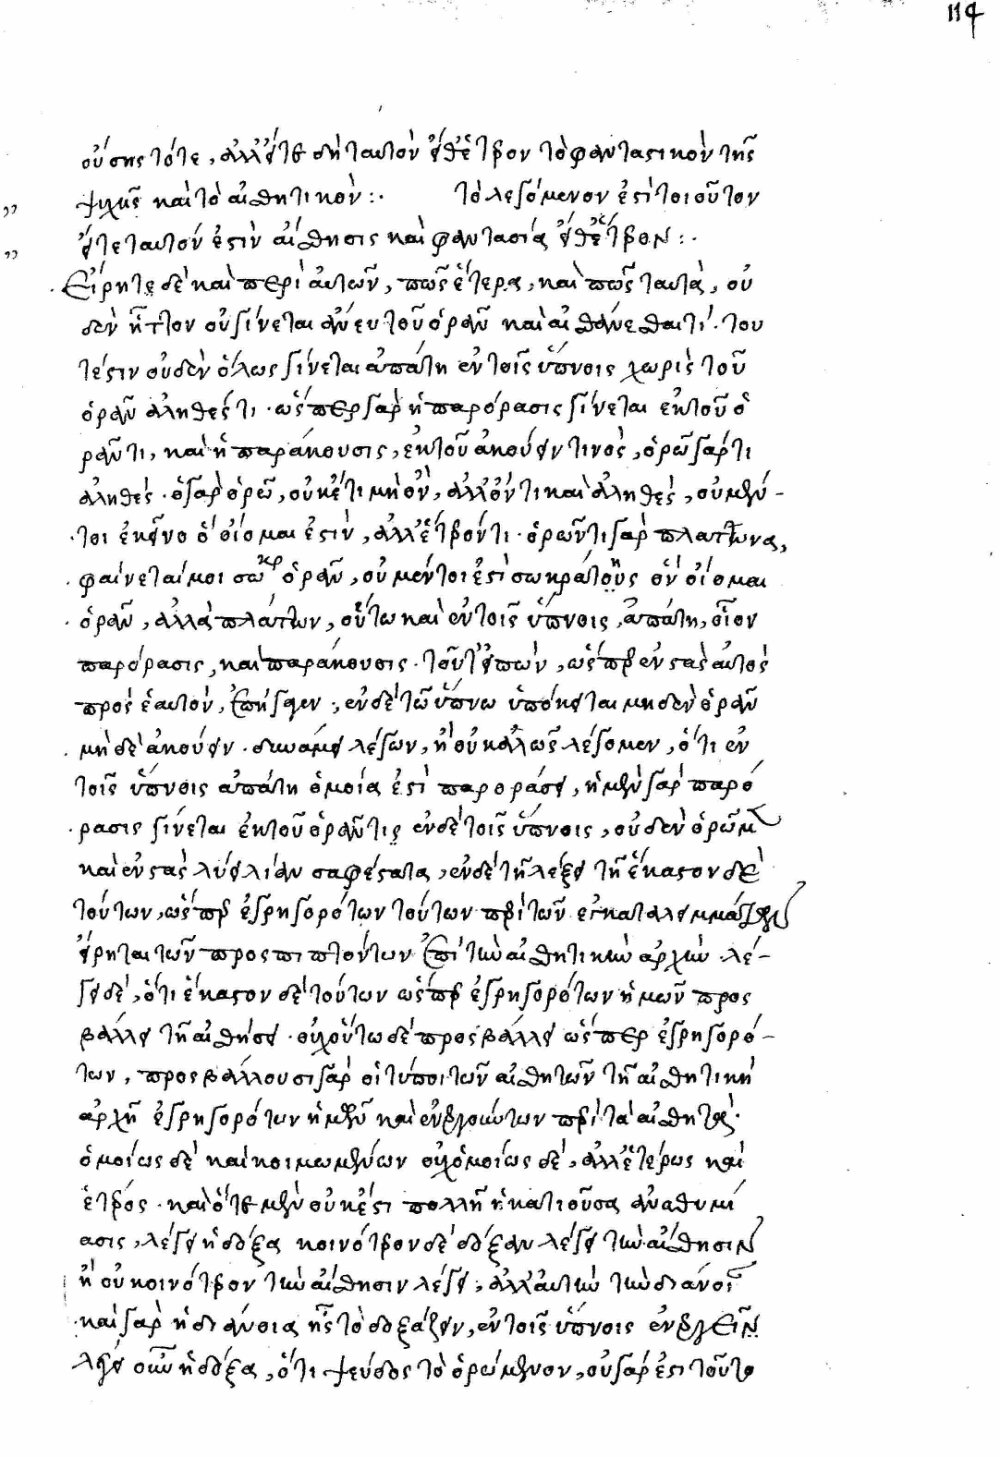 114
οὔσης τότε, ἀλλ' εἴτε δὴ ταυτὸν εἴθ' ἕτερον τὸ φανταστικὸν τῆς
ψυχῆς καὶ τὸ αἰσθητικόν :. τὸ λεγόμενον ἐστὶ τοιοῦτον
εἴτε ταυτόν ἐστιν αἴσθησις καὶ φαντασία εἴθ' ἕτερον :.
Εἴρηται δὲ καὶ περὶ αὐτῶν, πῶς ἕτερα, καὶ πῶς ταυτὰ, οὐ
δὲν ἧττον οὐ γίνεται ἄνευ τοῦ ὁρᾶν καὶ αἰσθάνεσθαι τί. του
τέστιν οὐδὲν ὅλως γίνεται ἀπάτη ἐν τοῖς ὕπνοις χωρὶς τοῦ
ὁρᾶν ἀληθές τι. ὥσπερ γὰρ ἡ παρόρασις γίνεται ἐκ τοῦ ὁ
ρᾶν τι, καὶ ἡ παράκουσις, ἐκ τοῦ ἀκούειν τινὸς, ὁρῶ γάρ τι
ἀληθές. ὃ γὰρ ὁρῶ, οὐκ ἔστι μὴ ὂν, ἀλλ' ὄν τι καὶ ἀληθὲς, οὐ μέν-
τοι ἐκεῖνο ὃ οἴομαι ἐστὶν, ἀλλ' ἕτερόν τι. ὁρῶντι γὰρ πλάτωνα,
φαίνεταί μοι σωκρ ὁρᾶν, οὐ μέντοι ἐστὶ σωκράτης ὃν οἴομαι
ὁρᾶν, ἀλλὰ πλάτων, οὕτω καὶ ἐν τοῖς ὕπνοις, ἀπάτη, οἷον
παρόρασις, καὶ παράκουσις. τοῦτ' εἰπὼν, ὥσπερ ἐνστὰς αὐτὸς
πρὸς ἑαυτὸν, ἐπήγαγεν :, ἐν δὲ τῶ ὕπνω ὑπόκειται μηδὲν ὁρᾶν
μὴ δὲ ἀκούειν. δυνάμει λέγων, ἢ οὐ καλῶς λέγομεν, ὅτι ἐν
τοῖς ὕπνοις ἀπάτη ὁμοία ἐστὶ παροράσει, ἡ μὲν γὰρ παρό
ρασις γίνεται ἐκ τοῦ ὁρᾶν τις ἐν δὲ τοῖς ὕπνοις, οὐδὲν ὁρῶμεν
καὶ ἐνστὰς λύει λίαν σαφέστατα, ἐν δὲ τῆ λέξει τῆ ἕκαστον δὲ
τούτων, ὥσπερ ἐγρηγορότων τούτων περὶ τῶν ἐγκαταλειμμάτων
εἴρηται τῶν προσπιπτόντων ἐπὶ τὴν αἰσθητικὴν ἀρχήν. λέ-
γει δὲ, ὅτι ἕκαστον δὲ τούτων ὥσπερ ἐγρηγορότων ἡμῶν προσ
βάλλει τῆ αἰσθήσει. οὐχ οὕτω δὲ προσβάλλει ὥσπερ ἐγρηγορό-
των, προσβάλλουσι γὰρ οἱ τύποι τῶν αἰσθητῶν τῆ αἰσθητικῆ
ἀρχῆ ἐγρηγορότων ἡμῶν καὶ ἐνεργούντων περὶ τὰ αἰσθητά.
ὁμοίως δὲ καὶ κοιμωμένων οὐχ ὁμοίως δὲ, ἀλλ' ἑτέρως καὶ
ἑτέρως. καὶ ὅτε μὲν οὐκ ἔστι πολλὴ ἡ κατιοῦσα ἀναθυμί
ασις, λέγει ἡ δόξα κοινότερον δὲ δόξαν λέγει τὴν αἴσθησιν
ἢ οὐ κοινότερον τὴν αἴσθησιν λέγει, ἀλλ' αὐτὴν τὴν διάνοιαν
καὶ γὰρ ἡ διάνοια ἧς τὸ δοξάζειν, ἐν τοῖς ὕπνοις ἐνεργεῖν
λέγει οὖν ἡ δόξα, ὅτι ψεῦδος τὸ ὁρώμενον, οὐ γάρ ἐστι τοῦτο